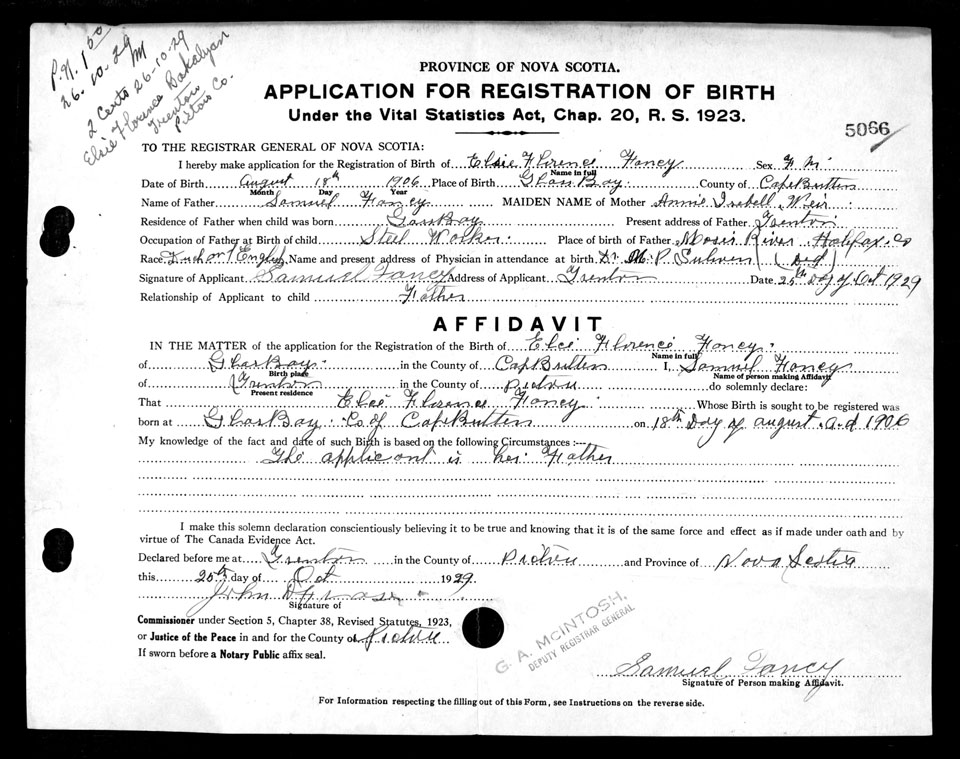 P.N. 1 50
26.10.29
M
2 Certs 26-10-29
Elsie Florence Bakalyar
Trenton
Pictou Co.
PROVINCE OF NOVA SCOTIA.
APPLICATION FOR REGISTRATION OF BIRTH
Under the Vital Statistics Act, Chap. 20, R. S. 1923.
5066
TO THE REGISTRAR GENERAL OF NOVA SCOTIA:
I hereby make application for the Registration of Birth of Elsie Florence Fancy Sex F
Name in full
Date of Birth August 18th 1906 Place of Birth Glace Bay County of Cape Britten
Month Day Year
Name of Father Samuel Fancy MAIDEN NAME of Mother Annie Isabell Weir
Residence of Father when child was born Glace Bay Present address of Father Trenton
Occupation of Father at Birth of child Steel Worker Place of birth of Father Moser River Halifax Co
Race English Name and present address of Physician in attendance at birth Dr. M. P. (Ded)
Signature of Applicant Samuel Fancy Address of Applicant Trenton Date 25th Day of Oct 1929
Relationship of Applicant to child Father
AFFIDAVIT
IN THE MATTER of the application for the Registration of the Birth of Elcie Florence Fancy
Name in full
of Glace Bay in the County of Cape Britten I, Samuel Fancy
Birth place Name of person making Affidavit
of Trenton in the County of Pictou do solemnly declare:
Present residence
That Elcie Florence Fancy Whose Birth is sought to be registered was
born at Glace Bay Co of Cape Britten on 18th Day of August A.d 1906
My knowledge of the fact and date of such Birth is based on the following Circumstances :---
The applicant is her Father
I make this solemn declaration conscientiously believing it to be true and knowing that it is of the same force and effect as if made under oath and by
virtue of The Canada Evidence Act.
Declared before me at Trenton in the County of Pictou and Province of Nova Scotia
this 25th day of Oct 1929
John D Fraser
Signature of
Commissioner under Section 5, Chapter 38, Revised Statutes, 1923,
or Justice of the Peace in and for the County of Pictou
If sworn before a Notary Public affix seal.
G. A. McINTOSH,
DEPUTY REGISTRAR GENERAL
Samuel Fancy
Signature of Person making Affidavit.
For Information respecting the filling out of this Form, see Instructions on the reverse side.